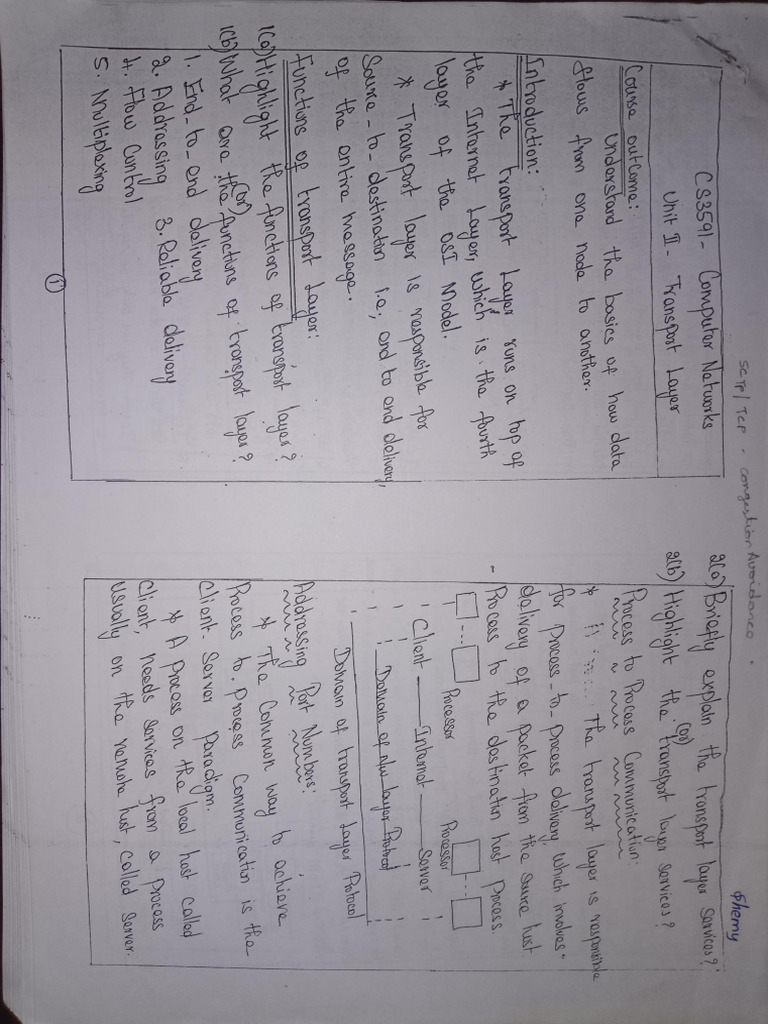 SCTP/TCP - Congestion Avoidance.
CS3591- Computer Networks
Unit II - Transport Layer
Course outcome:
Understand the basics of how data
flows from one node to another.
Introduction:
* The Transport Layer runs on top of
the Internet Layer, which is the fourth
layer of the OSI Model.
* Transport layer is responsible for
Source-to-destination i.e; end to end delivery,
of the entire message.
Functions of transport Layer:
1(a) Highlight the functions of transport layer?
(or)
1(b) What are the functions of transport layer?
1. End-to-end delivery
2. Addressing 3. Reliable delivery
4. Flow Control
5. Multiplexing
1
Phemy
2(a) Briefly explain the transport layer services?
(or)
2(b) Highlight the transport layer services?
Process to Process Communication:
* The transport layer is responsible
for Process-to-Process delivery, which involves
delivery of a packet from the source host
Process to the destination host Process.
Processor Processor
Client Internet Server
Domain of N/w layer Protocol
Domain of transport Layer Protocol
Addressing Port Numbers:
* The Common way to achieve
Process to-process Communication is the
Client-Server Paradigm.
* A Process on the local host called
Client, needs services from a process
usually on the remote host, called Server.